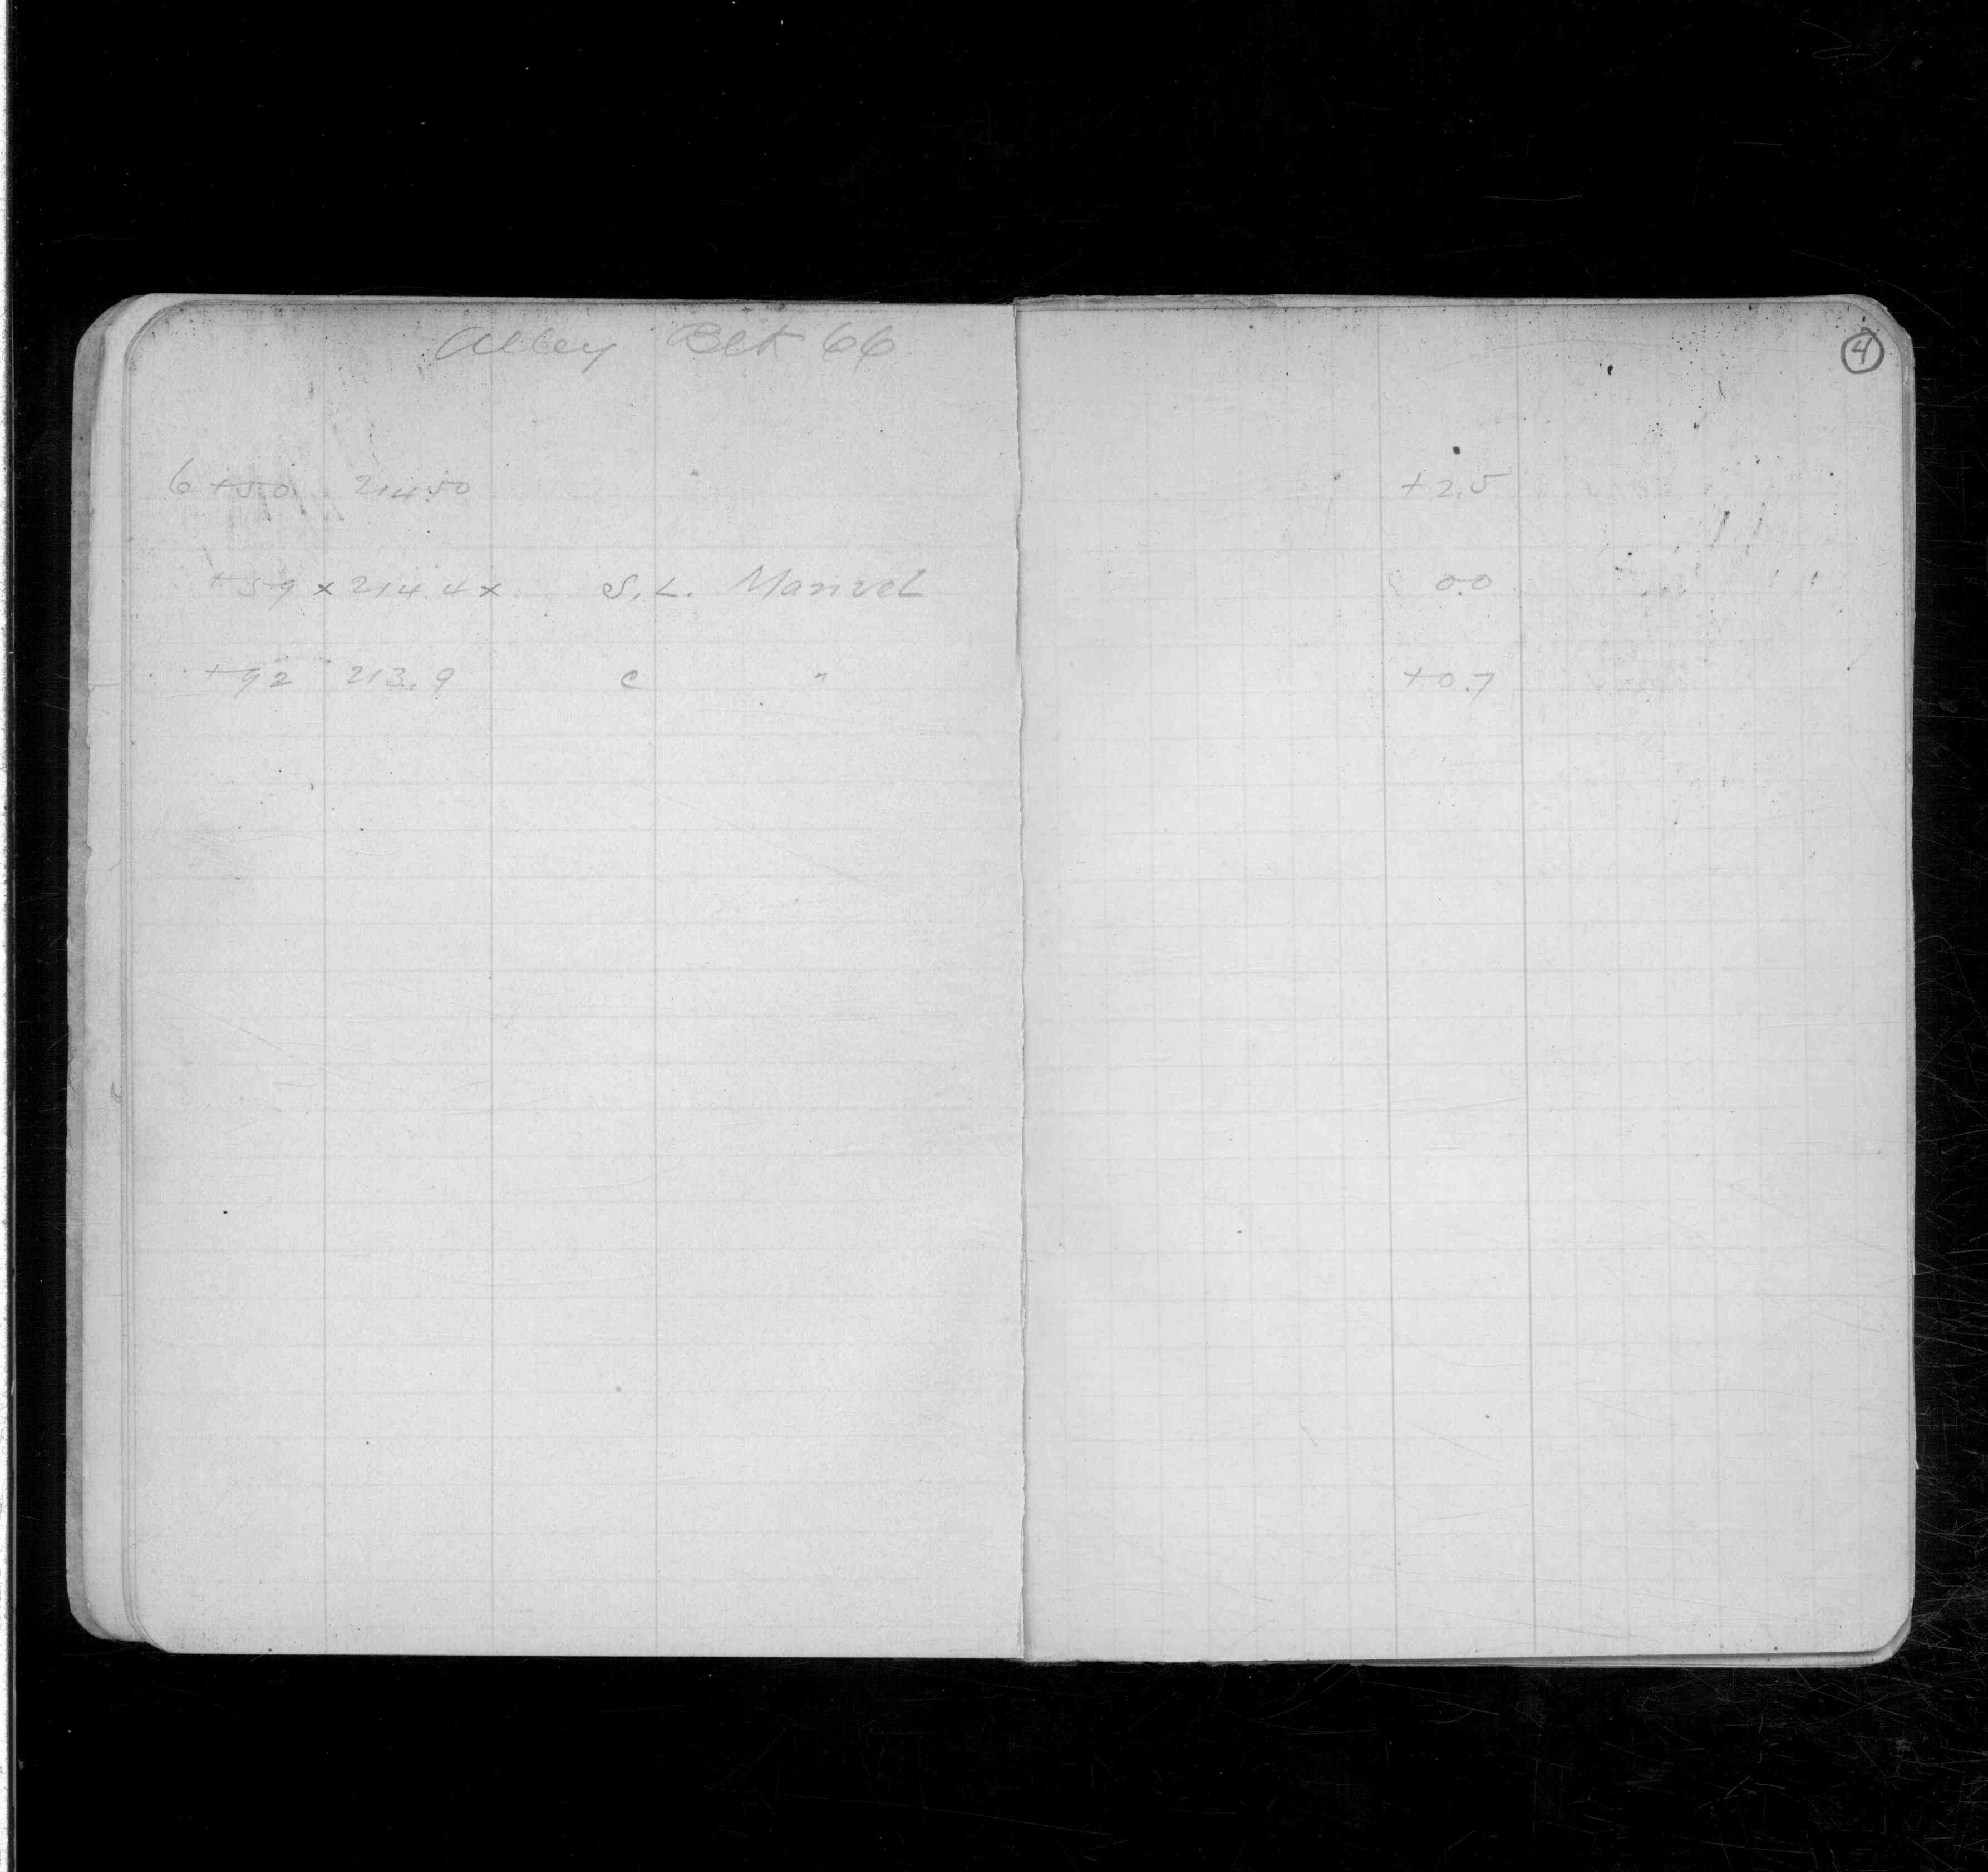 Alley Blk 66
4
6+50 214.50 +2.5
+59 x 214.4 x S.L. Manvel 0.0
+92 213.9 C " +0.7